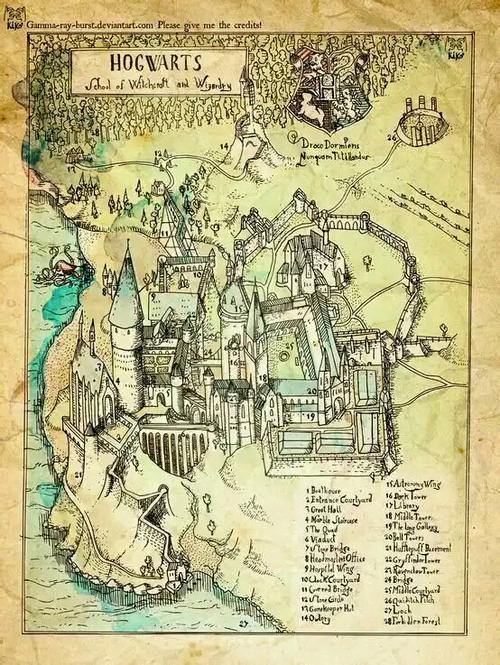 Gamma-ray-burst.deviantart.com Please give me the credits!
KiKo
KiKo
HOGWARTS
School of Witchcraft and Wizardry
Draco Dormiens
Nunquam Titillandus
28
14
26
13
12
9
17
25
4
3
2
20
19
18
27
1 Boathouse
2 Entrance Courtyard
3 Great Hall
4 Marble Staircase
5 The Quad
6 Viaduct
7 Stone Bridge
8 Headmaster Office
9 Hospital Wing
10 Clock Courtyard
11 Covered Bridge
12 Stone Circle
13 Gamekeeper Hut
14 Owlery
15 Astronomy Wing
16 Dark Tower
17 Library
18 Middle Tower
19 The long Gallery
20 Bell Towers
21 Hufflepuff Basement
22 Gryffindor Tower
23 Ravenclaw Tower
24 Bridge
25 Middle Courtyard
26 Quidditch Pitch
27 Loch
28 Forbidden Forest